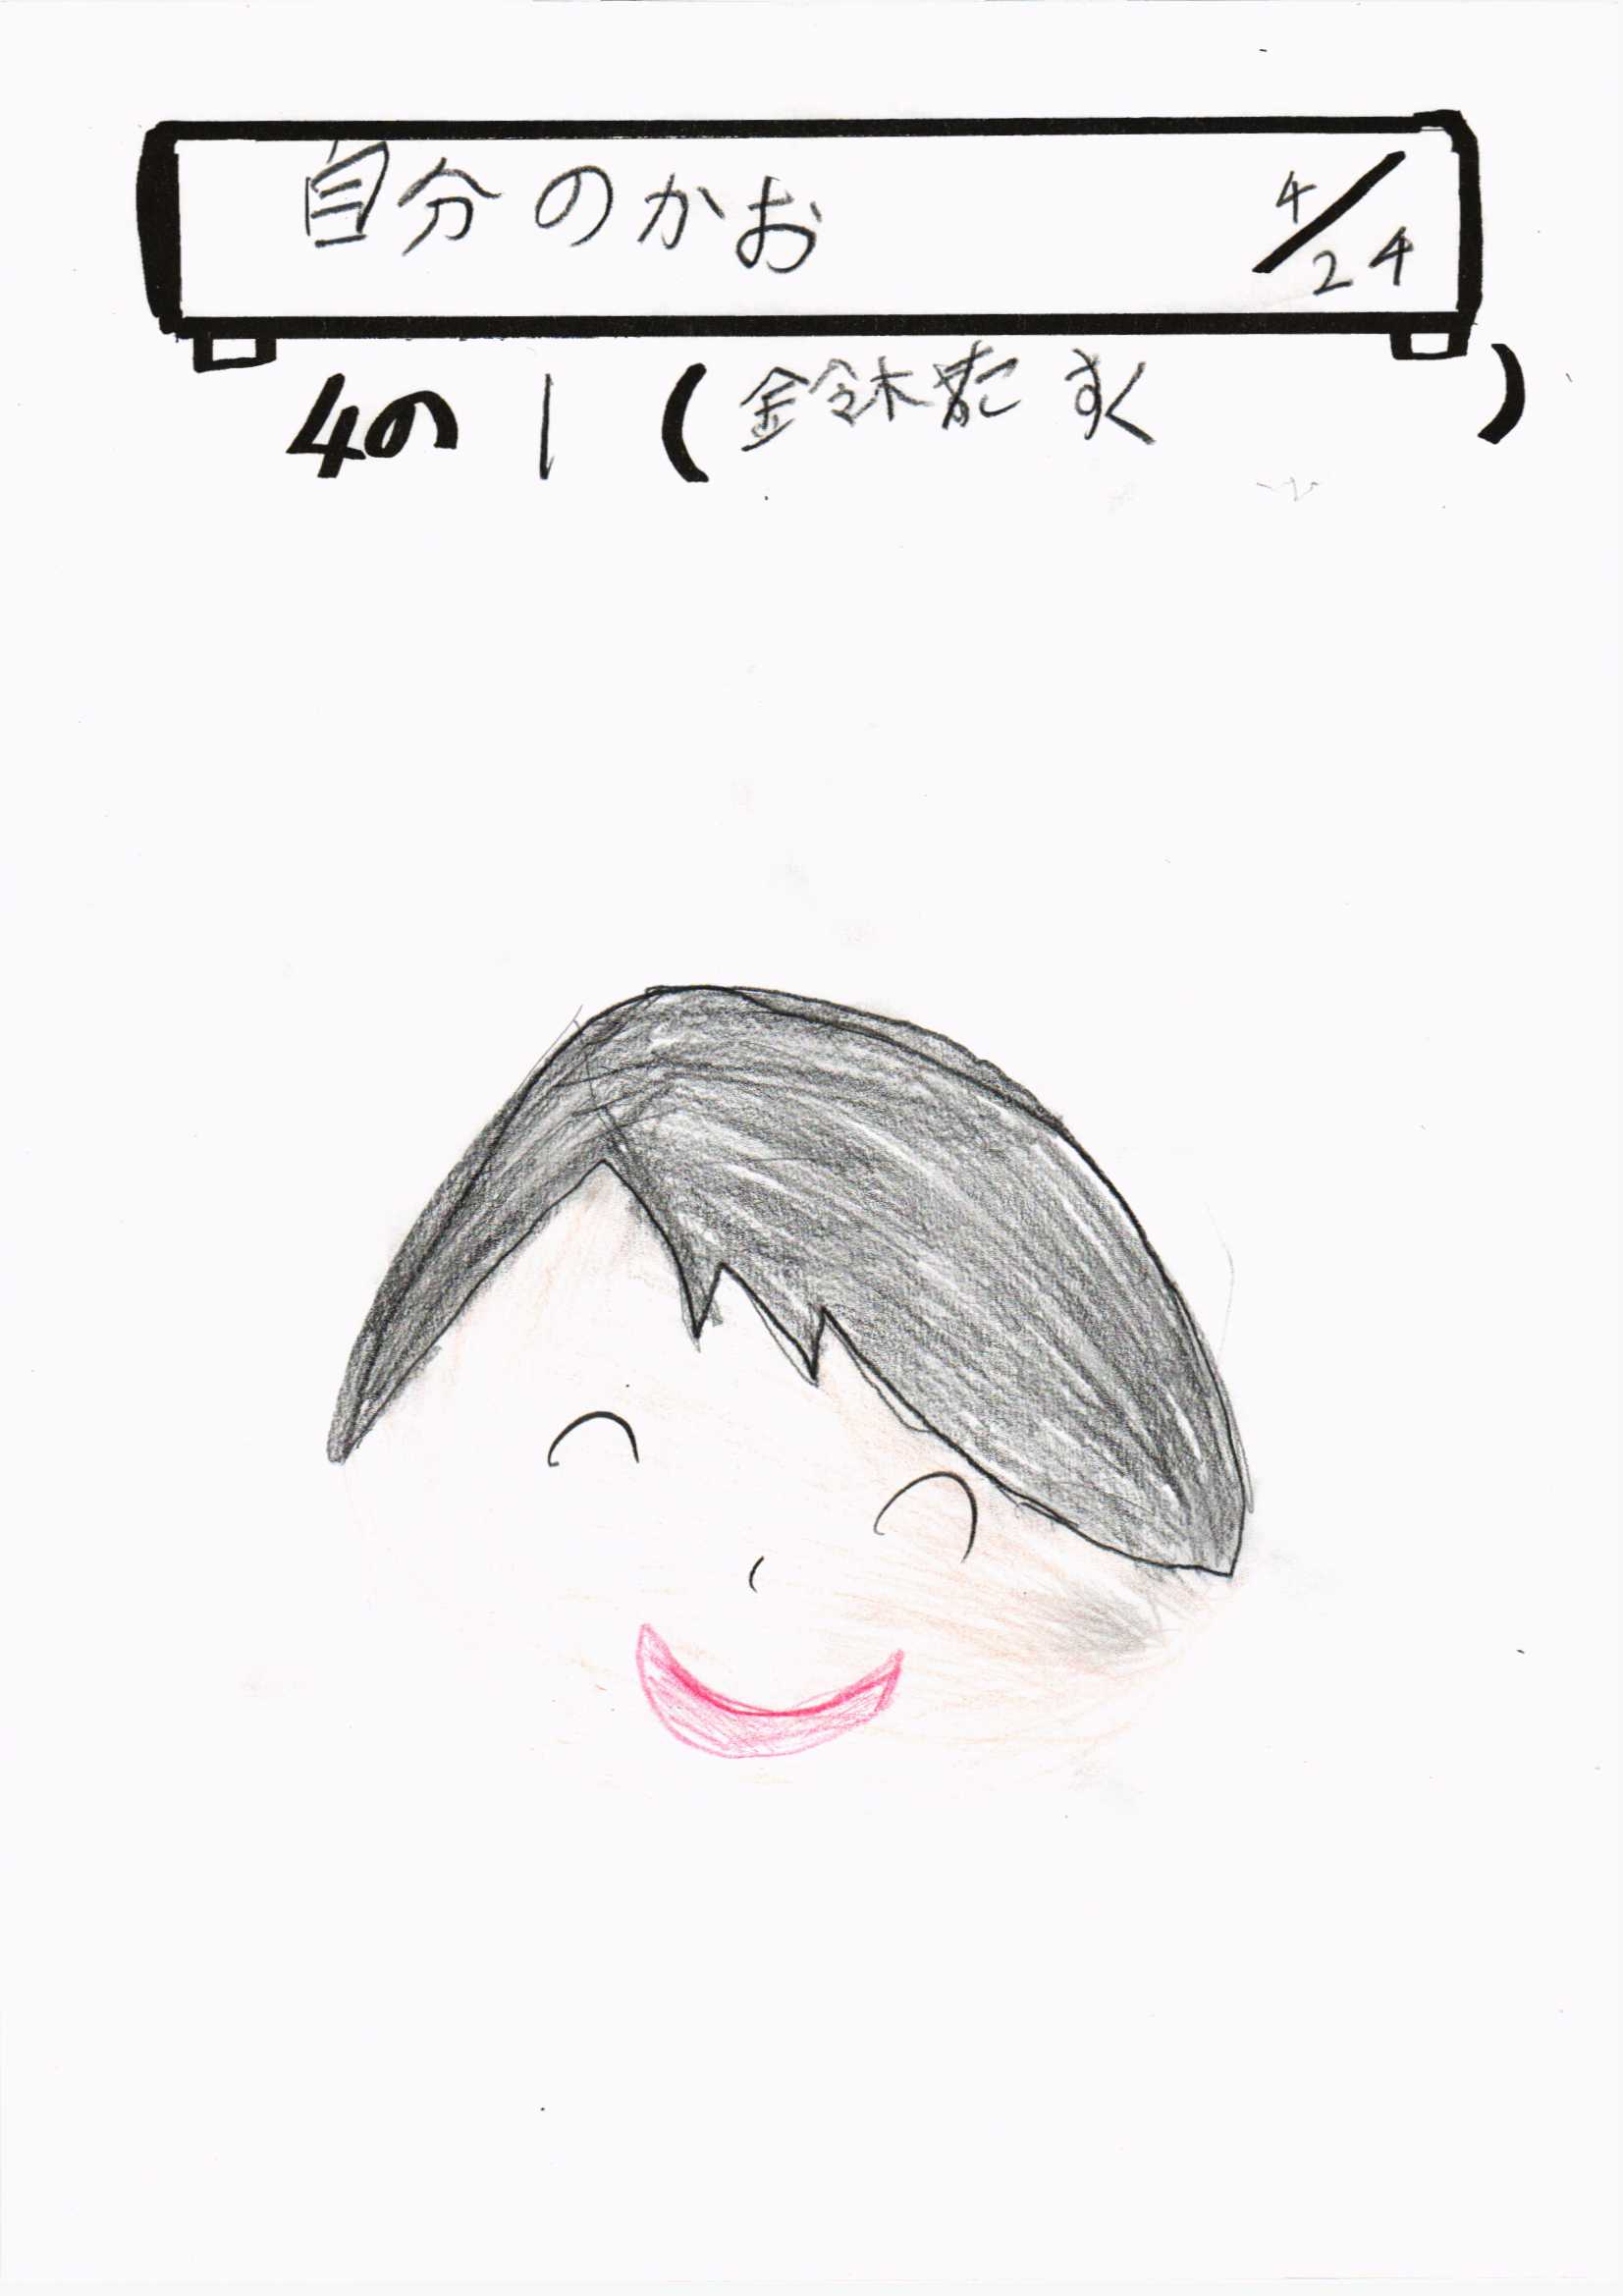 自分のかお 4/24
4の1(鈴木 すく)